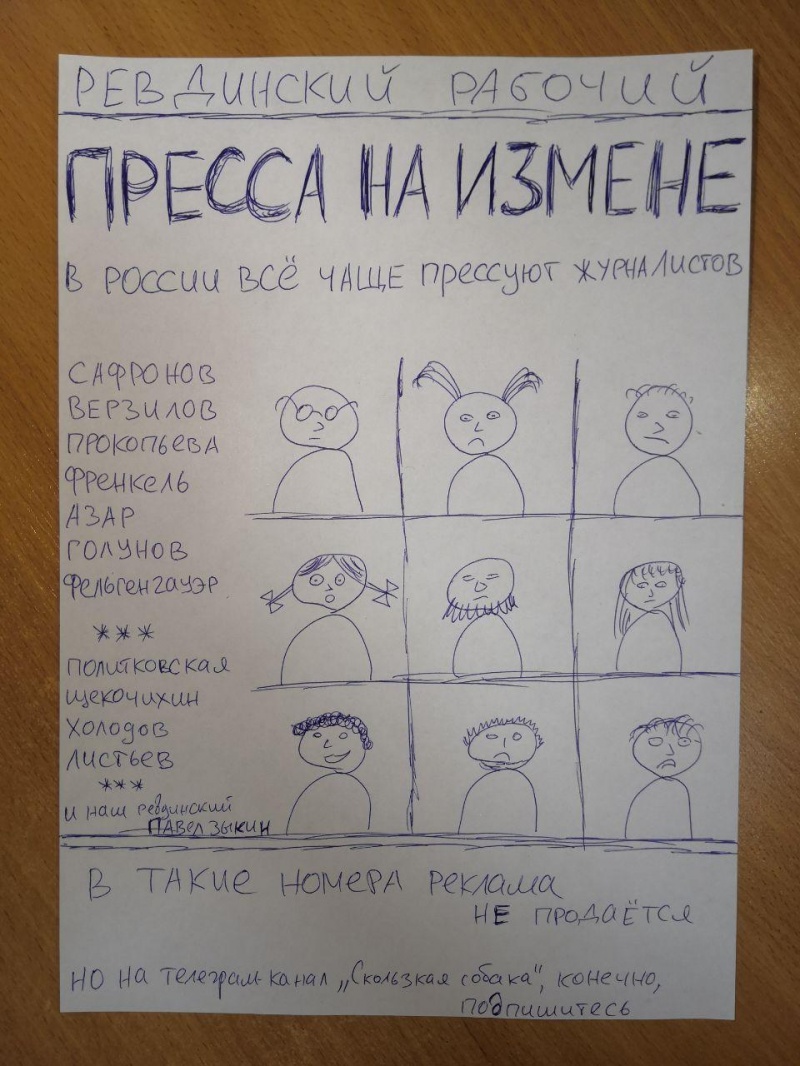 РЕВДИНСКИЙ РАБОЧИЙ
ПРЕССА НА ИЗМЕНЕ
В РОССИИ ВСЁ ЧАЩЕ ПРЕССУЮТ ЖУРНАЛИСТОВ
САФРОНОВ
ВЕРЗИЛОВ
ПРОКОПЬЕВА
ФРЕНКЕЛЬ
АЗАР
ГОЛУНОВ
ФЕЛЬГЕНГАУЭР
***
ПОЛИТКОВСКАЯ
ЩЕКОЧИХИН
ХОЛОДОВ
ЛИСТЬЕВ
***
и наш ревдинский
ПАВЕЛ ЗЫКИН
В ТАКИЕ НОМЕРА РЕКЛАМА
НЕ ПРОДАЁТСЯ
НО НА ТЕЛЕГРАМ-КАНАЛ „Скользкая собака“, КОНЕЧНО,
ПОДПИШИТЕСЬ